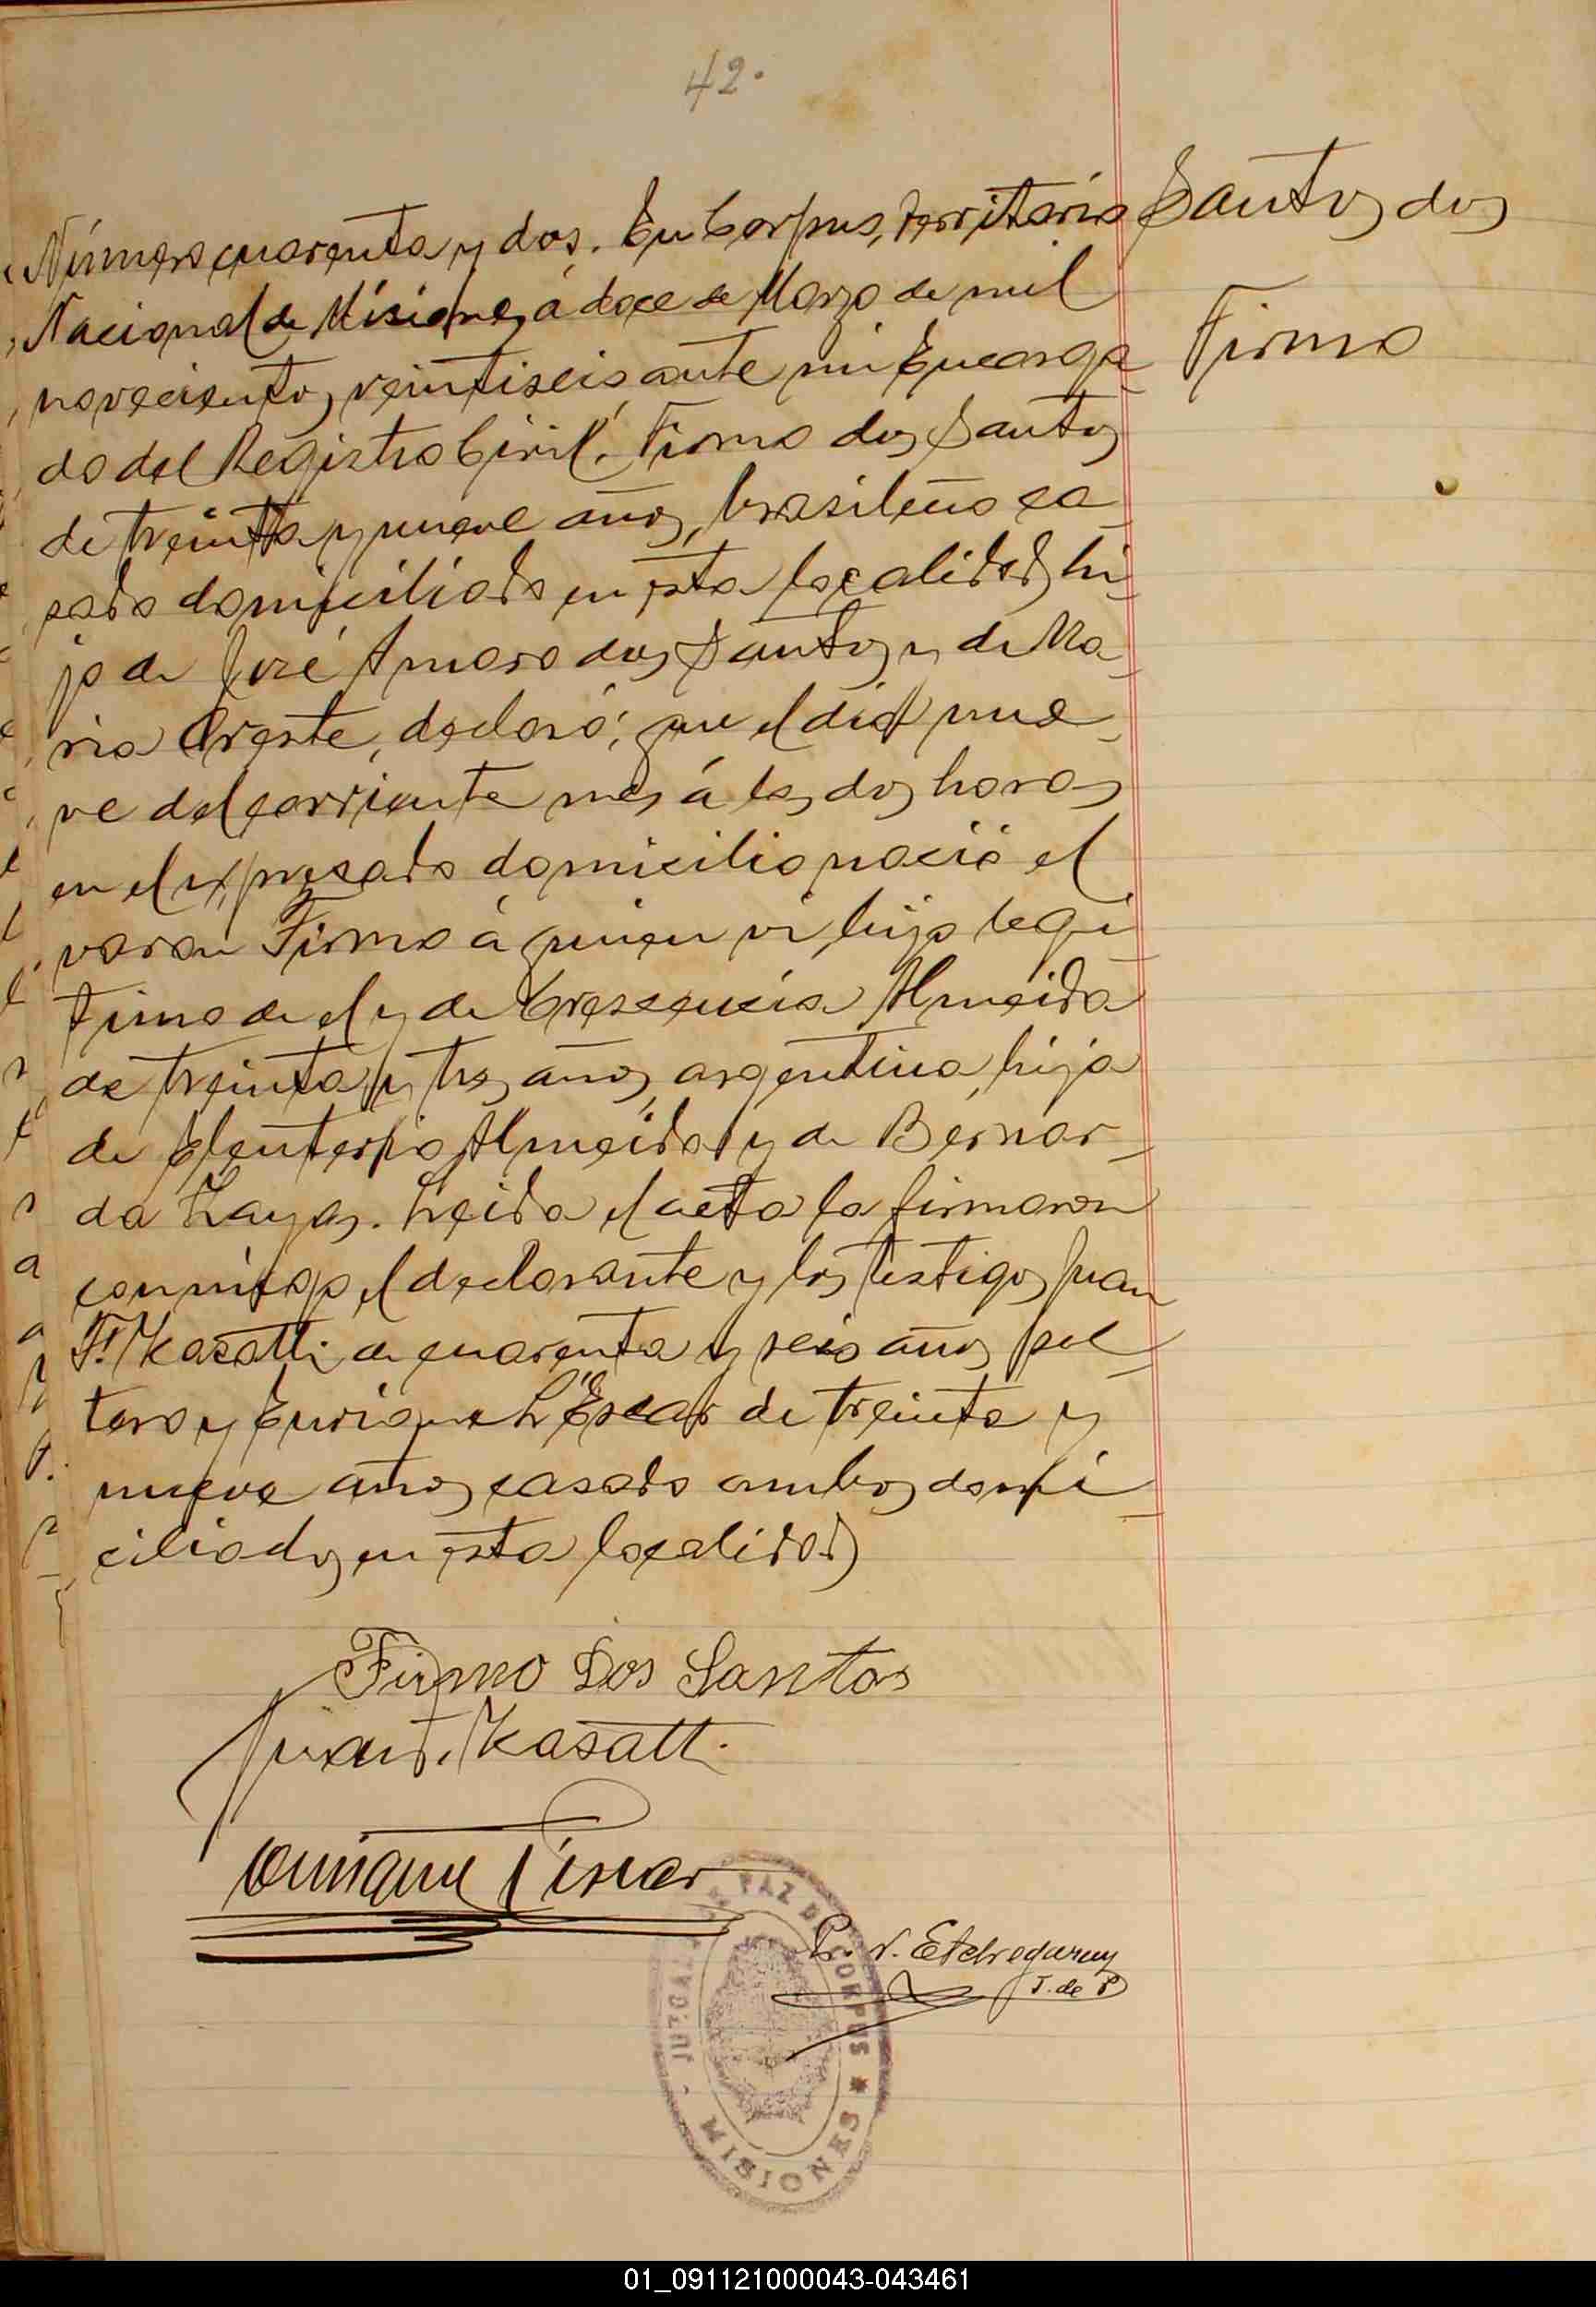 42.
Santos dos
Firmo
Número cuarenta y dos. En Corpus, Territorio
Nacional de Misiones, á doce de Marzo de mil
novecientos veintiseis, ante mi Encarga
do del Registro Civil, Firmo dos Santos
de treinta y nueve años, brasileño ca
sado domiciliado en esta localidad, hi
jo de José Amaro dos Santos y de Ma
ria Oreste, declaró; que el dia nue
ve del corriente mes á las dos horas
en el expresado domicilio nació el
varon Firmo á quien vi, hijo legi
timo de el y de Cresencia Almeida
de treinta y tres años, argentina, hija
de Eleuterio Almeida y de Bernar
da Layas. Leida el acta la firmaron
conmigo el declarante y los testigos Juan
F. Kasatti de cuarenta y seis años sol
tero y Enrique L'Escar de treinta y
nueve años casado ambos domi
ciliados en esta localidad
Firmo Dos Santos
Juan F. Kasatti
Enrique L'Escar
N. Etchegaray
J. de P
JUZGADO DE PAZ DE CORPUS
MISIONES
01_091121000043-043461